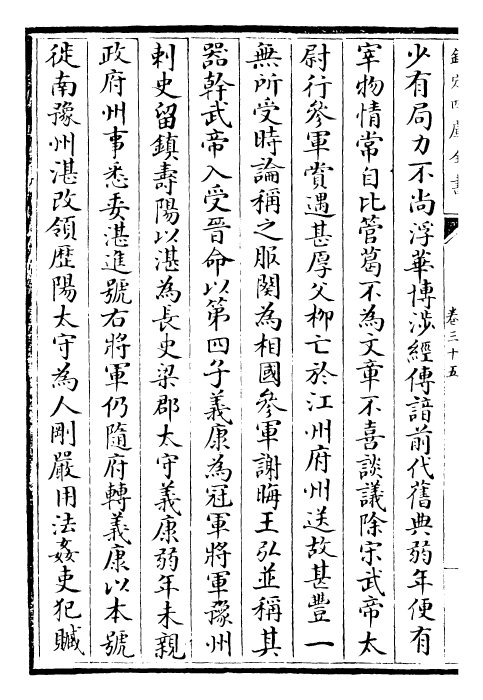 欽定四庫全書
卷三十五
少有局力不尚浮華博涉經傳諳前代舊典弱年便有
宰物情常自比管葛不為文章不喜談議除宋武帝太
尉行參軍賞遇甚厚父柳亡於江州府州送故甚豐一
無所受時論稱之服闋為相國參軍謝晦王弘並稱其
器幹武帝入受晉命以第四子義康為冠軍將軍豫州
刺史留鎮壽陽以湛為長史梁郡太守義康弱年未親
政府州事悉委湛進號右將軍仍隨府轉義康以本號
徙南豫州湛改領歷陽太守為人剛嚴用法姦吏犯贓